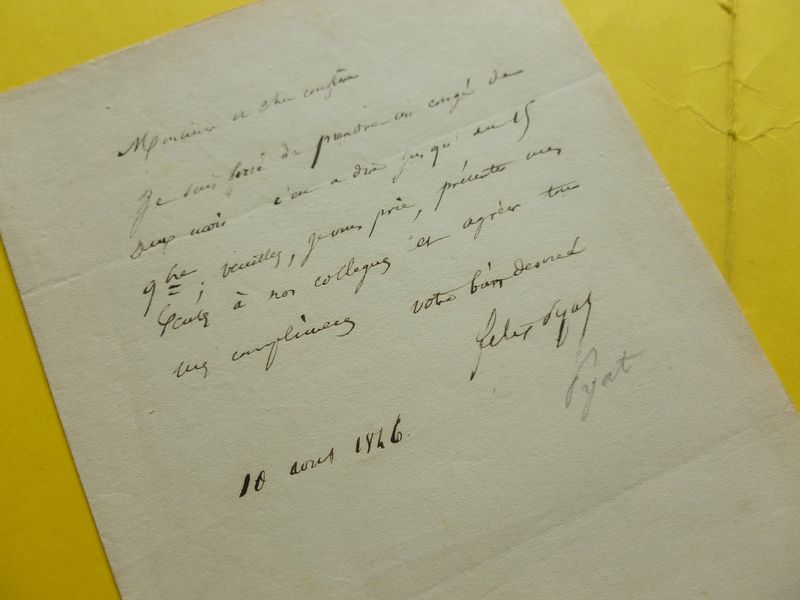 Monsieur et cher confrère
Je suis forcé de prendre un congé de
deux mois c'est a dire jusqu'au 15
9bre; veuillez, je vous prie, présenter mes
à nos collegues et agréer tous
mes compliments votre bien devoué
Felix Pyat
Pyat
10 aout 1846.